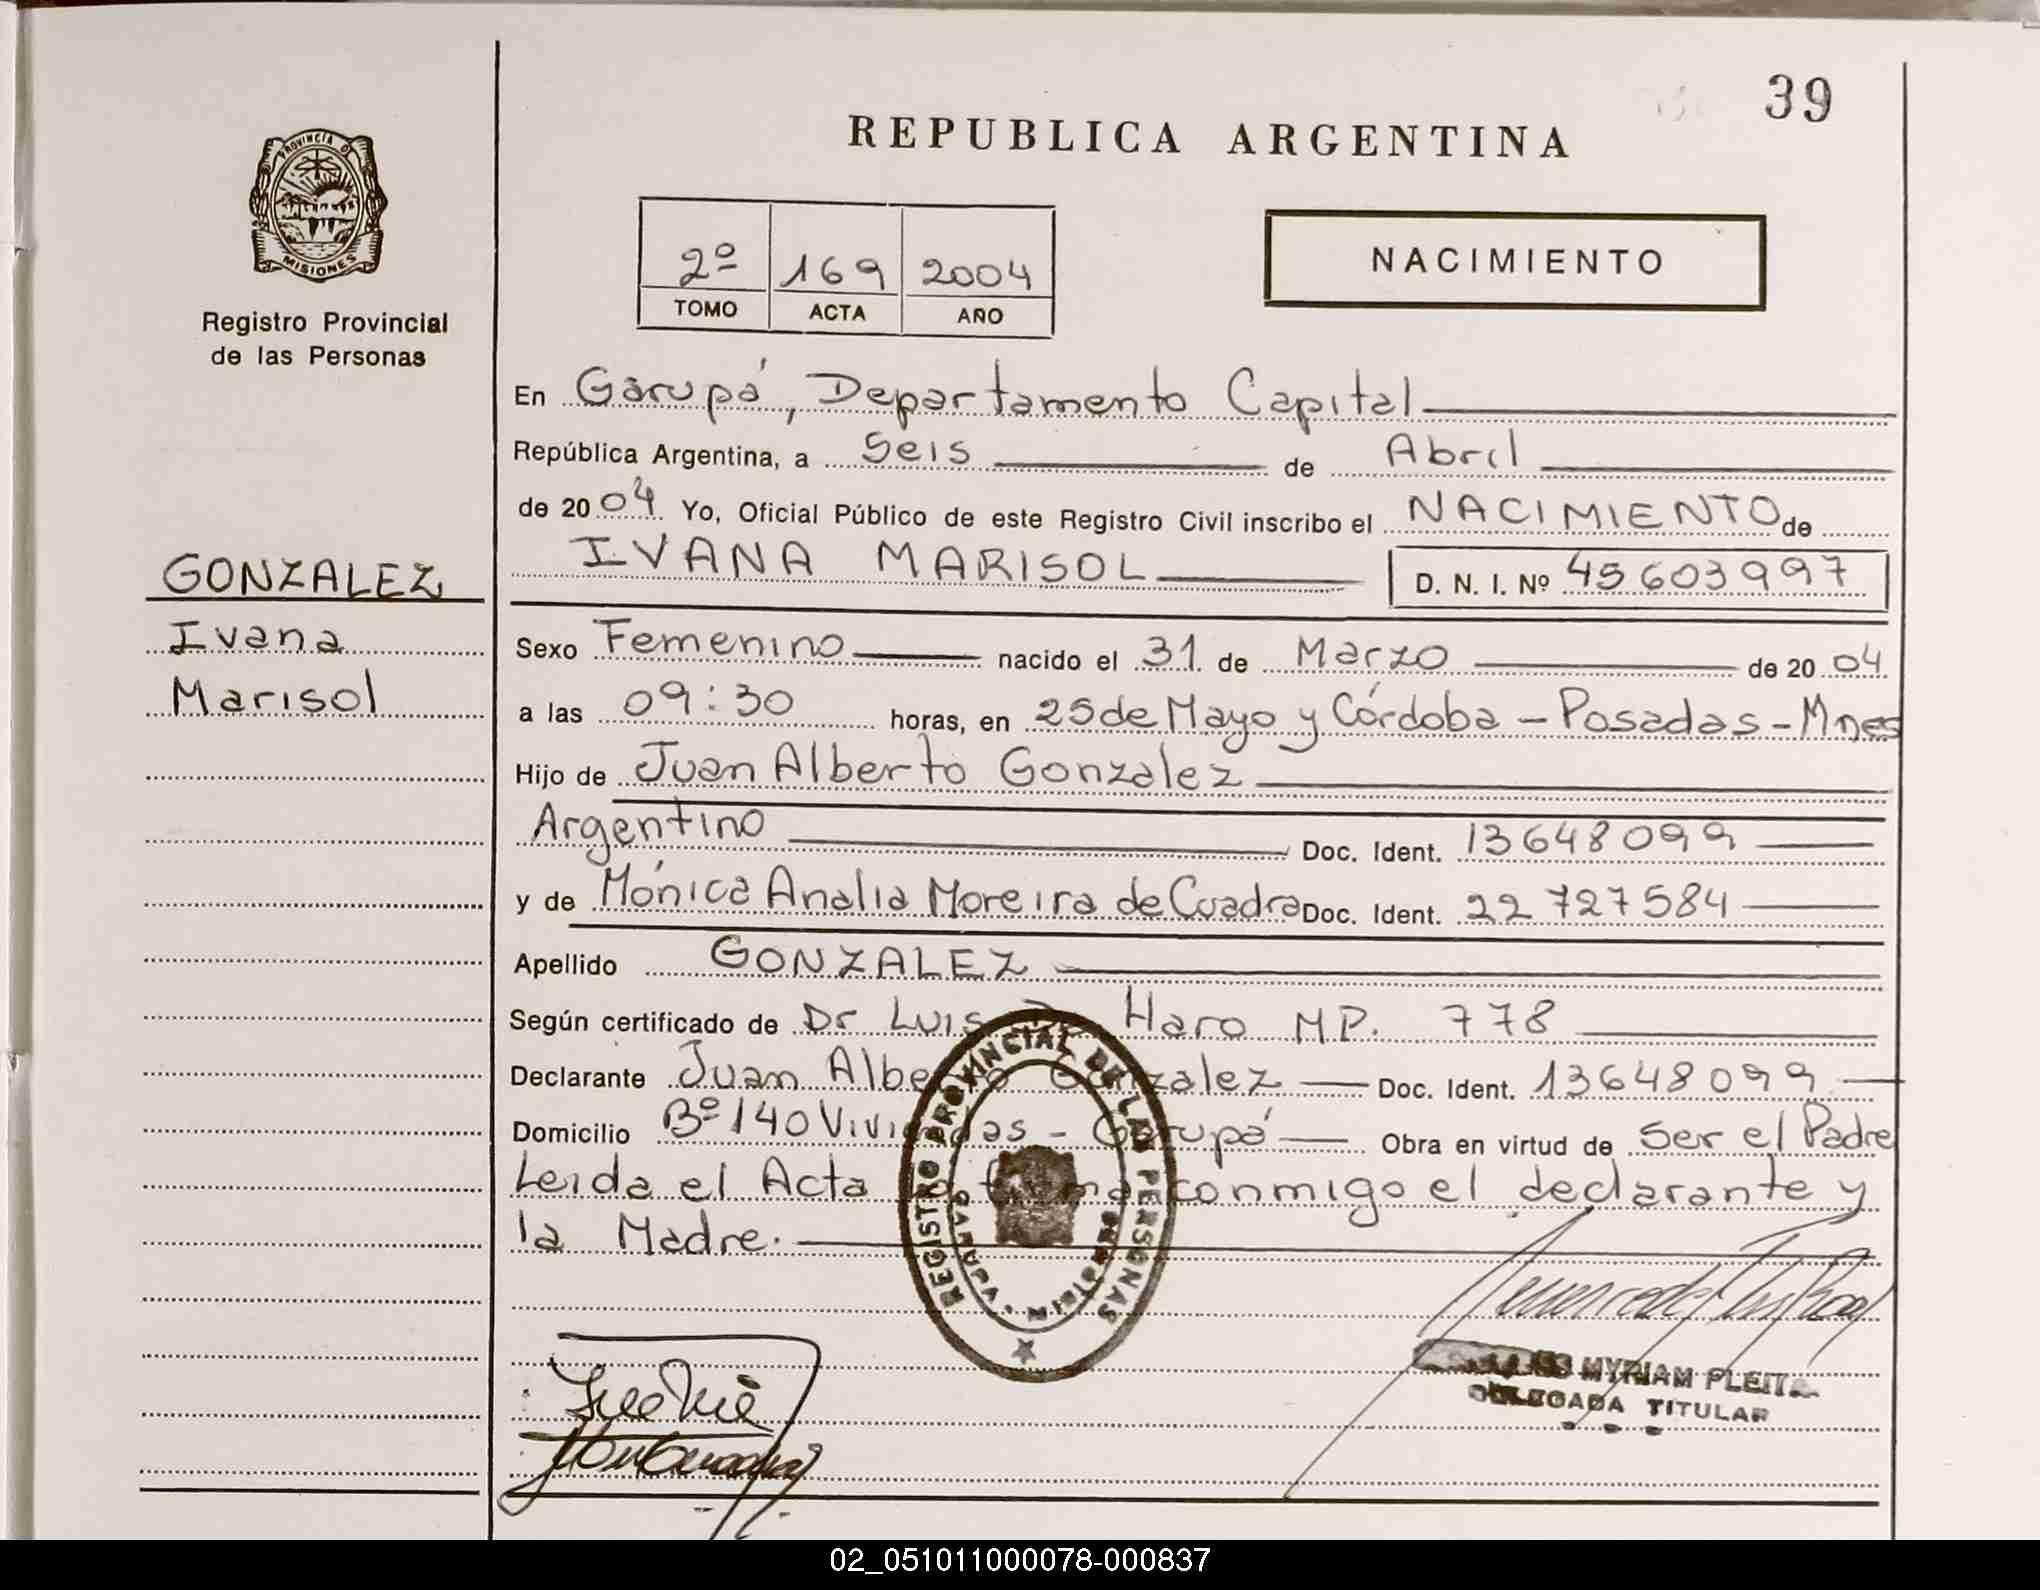 39
REPUBLICA ARGENTINA
PROVINCIA D
MISIONES
Registro Provincial
de las Personas
2º 169 2004
TOMO ACTA AÑO
NACIMIENTO
En Garupá, Departamento Capital
República Argentina, a Seis de Abril
de 2004 Yo, Oficial Público de este Registro Civil inscribo el NACIMIENTO de
IVANA MARISOL D. N. I. Nº 45603997
GONZALEZ
Ivana
Marisol
Sexo Femenino nacido el 31 de Marzo de 2004
a las 09:30 horas, en 25 de Mayo y Córdoba - Posadas - Mnes
Hijo de Juan Alberto Gonzalez
Argentino Doc. Ident. 13648099
y de Mónica Analia Moreira de Cuadra Doc. Ident. 22727584
Apellido GONZALEZ
Según certificado de Dr Luis Haro M.P. 778
Declarante Juan Alberto Gonzalez Doc. Ident. 13648099
Domicilio Bº 140 Viviendas - Garupá Obra en virtud de Ser el Padre
Leida el Acta la firma conmigo el declarante y
la Madre.
REGISTRO PROVINCIAL DE LAS PERSONAS
GARUPA
MYRIAM PLEITA
DELEGADA TITULAR
02_051011000078-000837